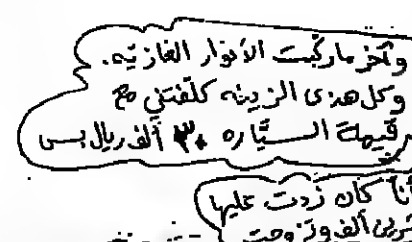 وآخر ماركّبت الأنوار الغازيّه.
وكل هذى الزينه كلّفتني مع
قيمة السيّاره ٣٠ ألف ريال بس
أنا كان زدت عليها
ألف وتزوجت